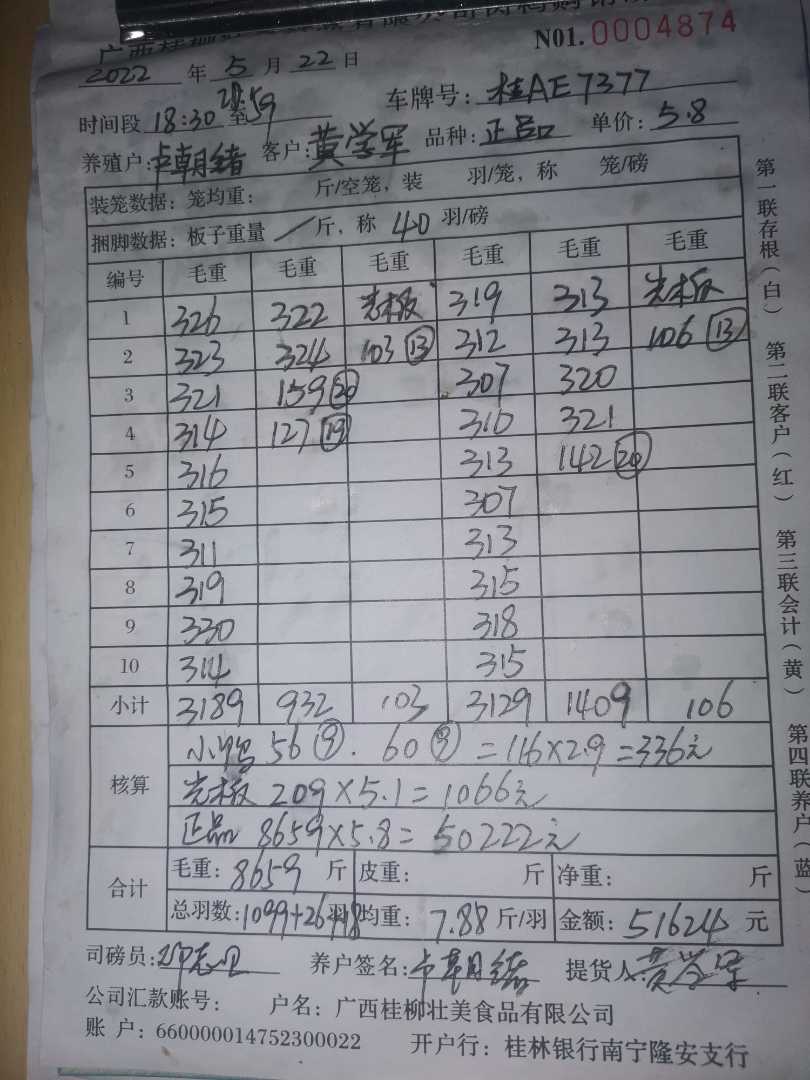 N01.0004874
2022 年 5 月 22 日
时间段 18:30 至 21:59 车牌号: 桂AE7377
养殖户: 卢朝绪 客户: 黄学军 品种: 正品 单价: 5.8
装笼数据: 笼均重: 斤/空笼, 装 羽/笼, 称 笼/磅
捆脚数据: 板子重量 / 斤, 称 40 羽/磅
编号 毛重 毛重 毛重 毛重 毛重 毛重
1 326 322 光板 319 313 光板
2 323 324 103 13 312 313 106 13
3 321 159 20 307 320
4 314 127 19 310 321
5 316 313 142 20
6 315 307
7 311 313
8 319 315
9 330 318
10 314 315
小计 3189 932 103 3129 1409 106
核算
小鸭 56 9 . 60 9 =116×2.9=336元
光板 209×5.1=1066元
正品 8659×5.8=50222元
合计
毛重: 8659 斤 皮重: 斤 净重: 斤
总羽数: 1099+26+18 羽 均重: 7.88 斤/羽 金额: 51624 元
司磅员: 养户签名: 卢朝绪 提货人: 黄学军
公司汇款账号: 户名: 广西桂柳壮美食品有限公司
账 户: 660000014752300022 开户行: 桂林银行南宁隆安支行
第一联存根(白) 第二联客户(红) 第三联会计(黄) 第四联养户(蓝)